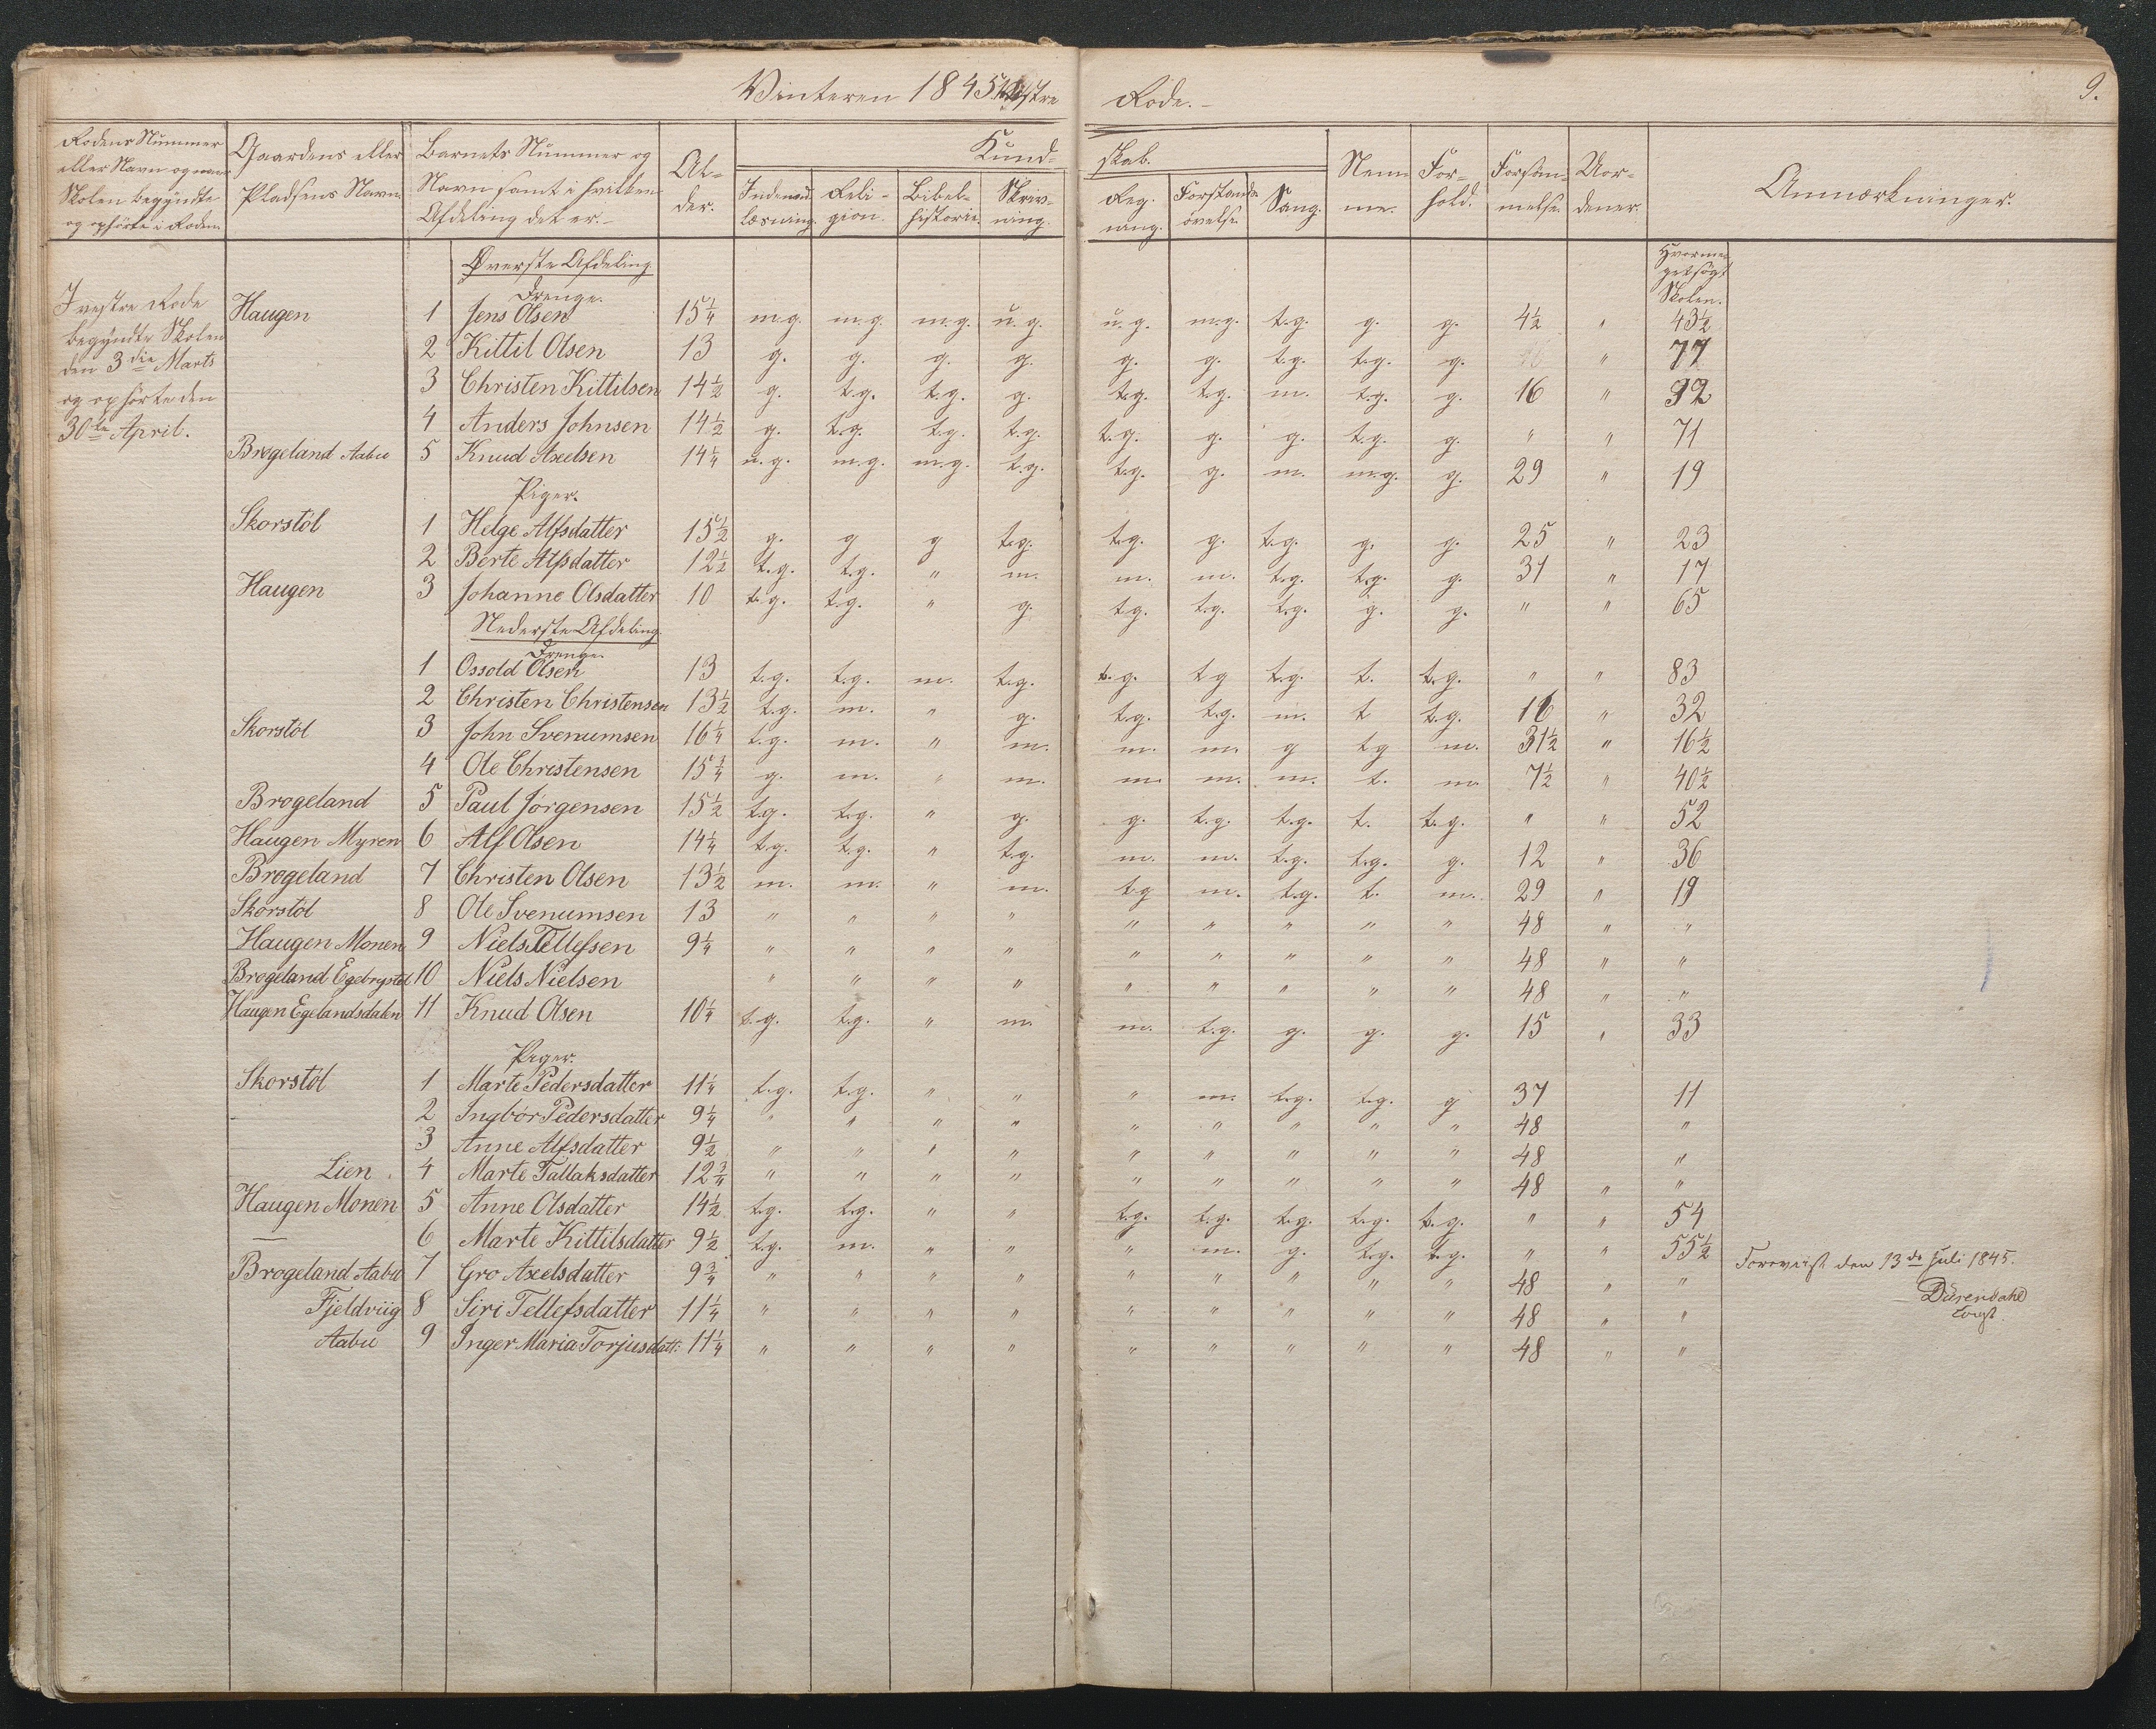 Vinteren 1845 Vestre Rode.
9.
Rodens Nummer eller Navn og naar Skolen begyndte og ophørte i Roden
Gaardens eller Pladsens Navn.
Barnets Nummer og Navn samt i hvilken Afdeling det er.
Al-der.
Kund-skab.
Indenad læsning.
Reli-gion.
Bibel-historie.
Skriv-ning.
Reg-ning.
Forstands øvelse.
Sang.
Nem-me.
For-hold.
Forsøm-melse.
Uor-dener.
Anmærkninger.
Hvormeget søgt Skolen.
I vestre Rode
begyndte Skolen
den 3die Marts
og ophørte den
30te April.
Øverste Afdeling
Drenge.
Haugen 1 Jens Olsen 15 1/4 m.g. m.g. m.g. u.g. u.g. m.g. t.g. g. g. 4 1/2 " 43 1/2
2 Kittil Olsen 13 g. g. g. g. g. g. t.g. t.g. g. " 77
3 Christen Kittilsen 14 1/2 g. t.g. t.g. g. t.g. t.g. m. t.g. g. 16 " 32
4 Anders Johnsen 14 1/2 g. t.g. t.g. t.g. t.g. g. g. t.g. g. " " 71
Brøgeland Aabu 5 Knud Axelsen 14 1/4 u.g. m.g. m.g. t.g. t.g. g. m. m.g. g. 29 " 19
Piger.
Skorstöl 1 Helge Alfsdatter 15 1/2 g. g g t.g. t.g. g. t.g. g. g. 25 " 23
2 Berte Alfsdatter 12 1/2 t.g. t.g. " m. m. m. t.g. t.g. g. 31 " 17
Haugen 3 Johanne Olsdatter 10 t.g. t.g. " g. t.g. t.g. t.g. g. g. " " 65
Nederste Afdeling
Drenge.
1 Ossold Olsen 13 t.g. t.g. m. t.g. t.g. t.g t.g. t. t.g. " " 83
2 Christen Christensen 13 1/2 t.g. m. " g. t.g. t.g. m. t t.g. 16 " 32
Skorstöl 3 John Svenumsen 16 1/4 t.g. m. " m. m. m. g t.g m. 31 1/2 " 16 1/2
4 Ole Christensen 15 3/4 g. m. " m. m. m. m. t. m. 7 1/2 " 40 1/2
Brøgeland 5 Paul Jörgensen 15 1/2 t.g. t.g. " g. g. t.g. t.g. t. t.g. " " 52
Haugen Myren 6 Alf Olsen 14 1/4 t.g. t.g. " t.g. m. m. t.g. t.g. g. 12 " 36
Brøgeland 7 Christen Olsen 13 1/2 m. m. " m. t.g m. t.g. t. m. 29 " 19
Skorstöl 8 Ole Svenumsen 13 " " " " " " " " " 48 " "
Haugen Monen 9 Niels Tellefsen 9 1/4 " " " " " " " " " 48 " "
Brøgeland Egebrystöl 10 Niels Nielsen " " " " " " " " " 48 " "
Haugen Egelandsdalen 11 Knud Olsen 10 1/4 t.g. t.g. " m. m. t.g. g. g. g. 15 " 33
Piger.
Skorstöl 1 Marte Pedersdatter 11 1/4 t.g. t.g. " " " m. t.g. t.g. g 37 11
– 2 Ingbör Pedersdatter 9 1/4 " " " " " " " " " 48 "
3 Anne Alfsdatter 9 1/2 " " " " " " " " " 48 "
Lien 4 Marte Tallaksdatter 12 3/4 " " " " " " " " " 48 " "
Haugen Monen 5 Anne Olsdatter 14 1/2 t.g. t.g. " " t.g. t.g. t.g. t.g. t.g. " " 54
— 6 Marte Kittilsdatter 9 1/2 t.g. m. " " " m. g. t.g. t.g. " " 55 1/2
Brøgeland Aabu 7 Gro Axelsdatter 9 3/4 " " " " " " " " " 48 " "
Fjeldviig 8 Siri Tellefsdatter 11 1/4 " " " " " " " " " 48 " "
Aabu 9 Inger Maria Torjusdatt: 11 1/4 " " " " " " " " " 48 " "
Foreviist den 13de Juli 1845.